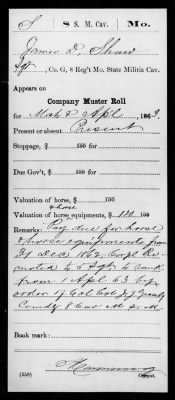 S 8 S. M. Cav. Mo.
James D. Shaw
Sgt, Co. G, 8 Reg't Mo. State Militia Cav.
Appears on
Company Muster Roll
for Mch & Apl, 1863.
Present or absent Present
Stoppage, $ 100 for
Due Gov't, $ 100 for
Valuation of horse, $ 100
& horse
Valuation of horse equipments, $ 130 100
Remarks: Pay due for horse
& horse equipments from
31 Dec 1862, Corpl Pro
moted to 5 Sgt to rank
from 1 Apl 63 by
order of Col J. J. Gravely
Comdg 8 Cav M. S. M.
Book mark:
(358) Copyist.